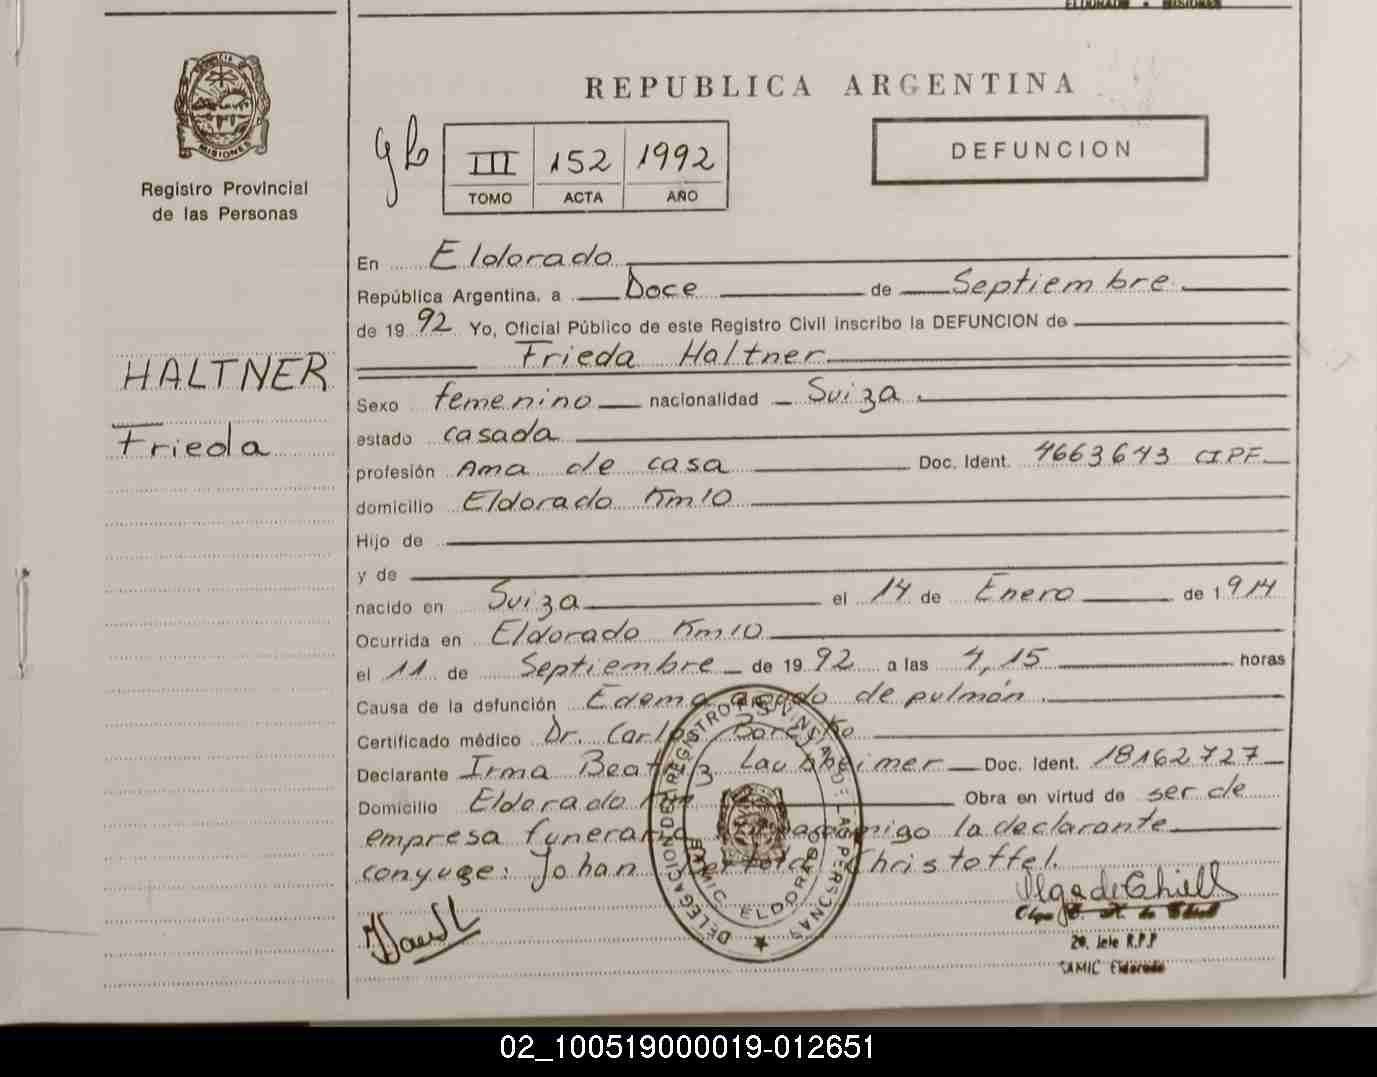 ELDORADO - MISIONES
PROVINCIA DE
MISIONES
Registro Provincial
de las Personas
HALTNER
Frieda
REPUBLICA ARGENTINA
III 152 1992
TOMO ACTA AÑO
DEFUNCION
En Eldorado
República Argentina, a Doce de Septiembre
de 1992 Yo, Oficial Público de este Registro Civil inscribo la DEFUNCION de
Frieda Haltner
Sexo femenino nacionalidad Suiza
estado casada
profesión Ama de casa Doc. Ident. 4663643 C.I.P.F.
domicilio Eldorado Km10
Hijo de
y de
nacido en Suiza el 14 de Enero de 1914
Ocurrida en Eldorado Km10
el 11 de Septiembre de 1992 a las 4,15 horas
Causa de la defunción Edema agudo de pulmón.
Certificado médico Dr. Carlos
Declarante Irma Beatriz Laubheimer Doc. Ident. 18162727
Domicilio Eldorado Obra en virtud de ser de
empresa funeraria la declarante
conyuge: Johan Christoffel.
DELEGACION DEL REGISTRO PROVINCIAL DE LAS PERSONAS
SAMIC ELDORADO
Olga de Thiell
2o. Jefe R.P.P
SAMIC Eldorado
02_100519000019-012651